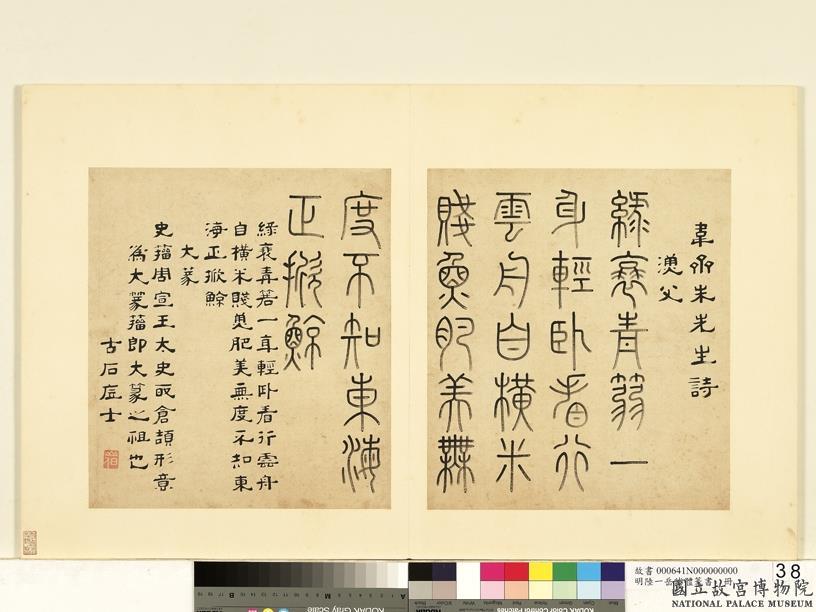 韋齋朱先生詩
漁父
綠蓑青篛一
身輕臥看行
雲舟自橫米
賤魚肥美無
度不知東海
正掀鯨
綠蓑青篛一身輕臥看行雲舟
自橫米賤魚肥美無度不知東
海正掀鯨
大篆
史籀周宣王太史取倉頡形意
為大篆籀即大篆之祖也
古石士
故書 000641N000000000
明陸一岳體篆書 冊
38
國立故宮博物院
NATIONAL PALACE MUSEUM